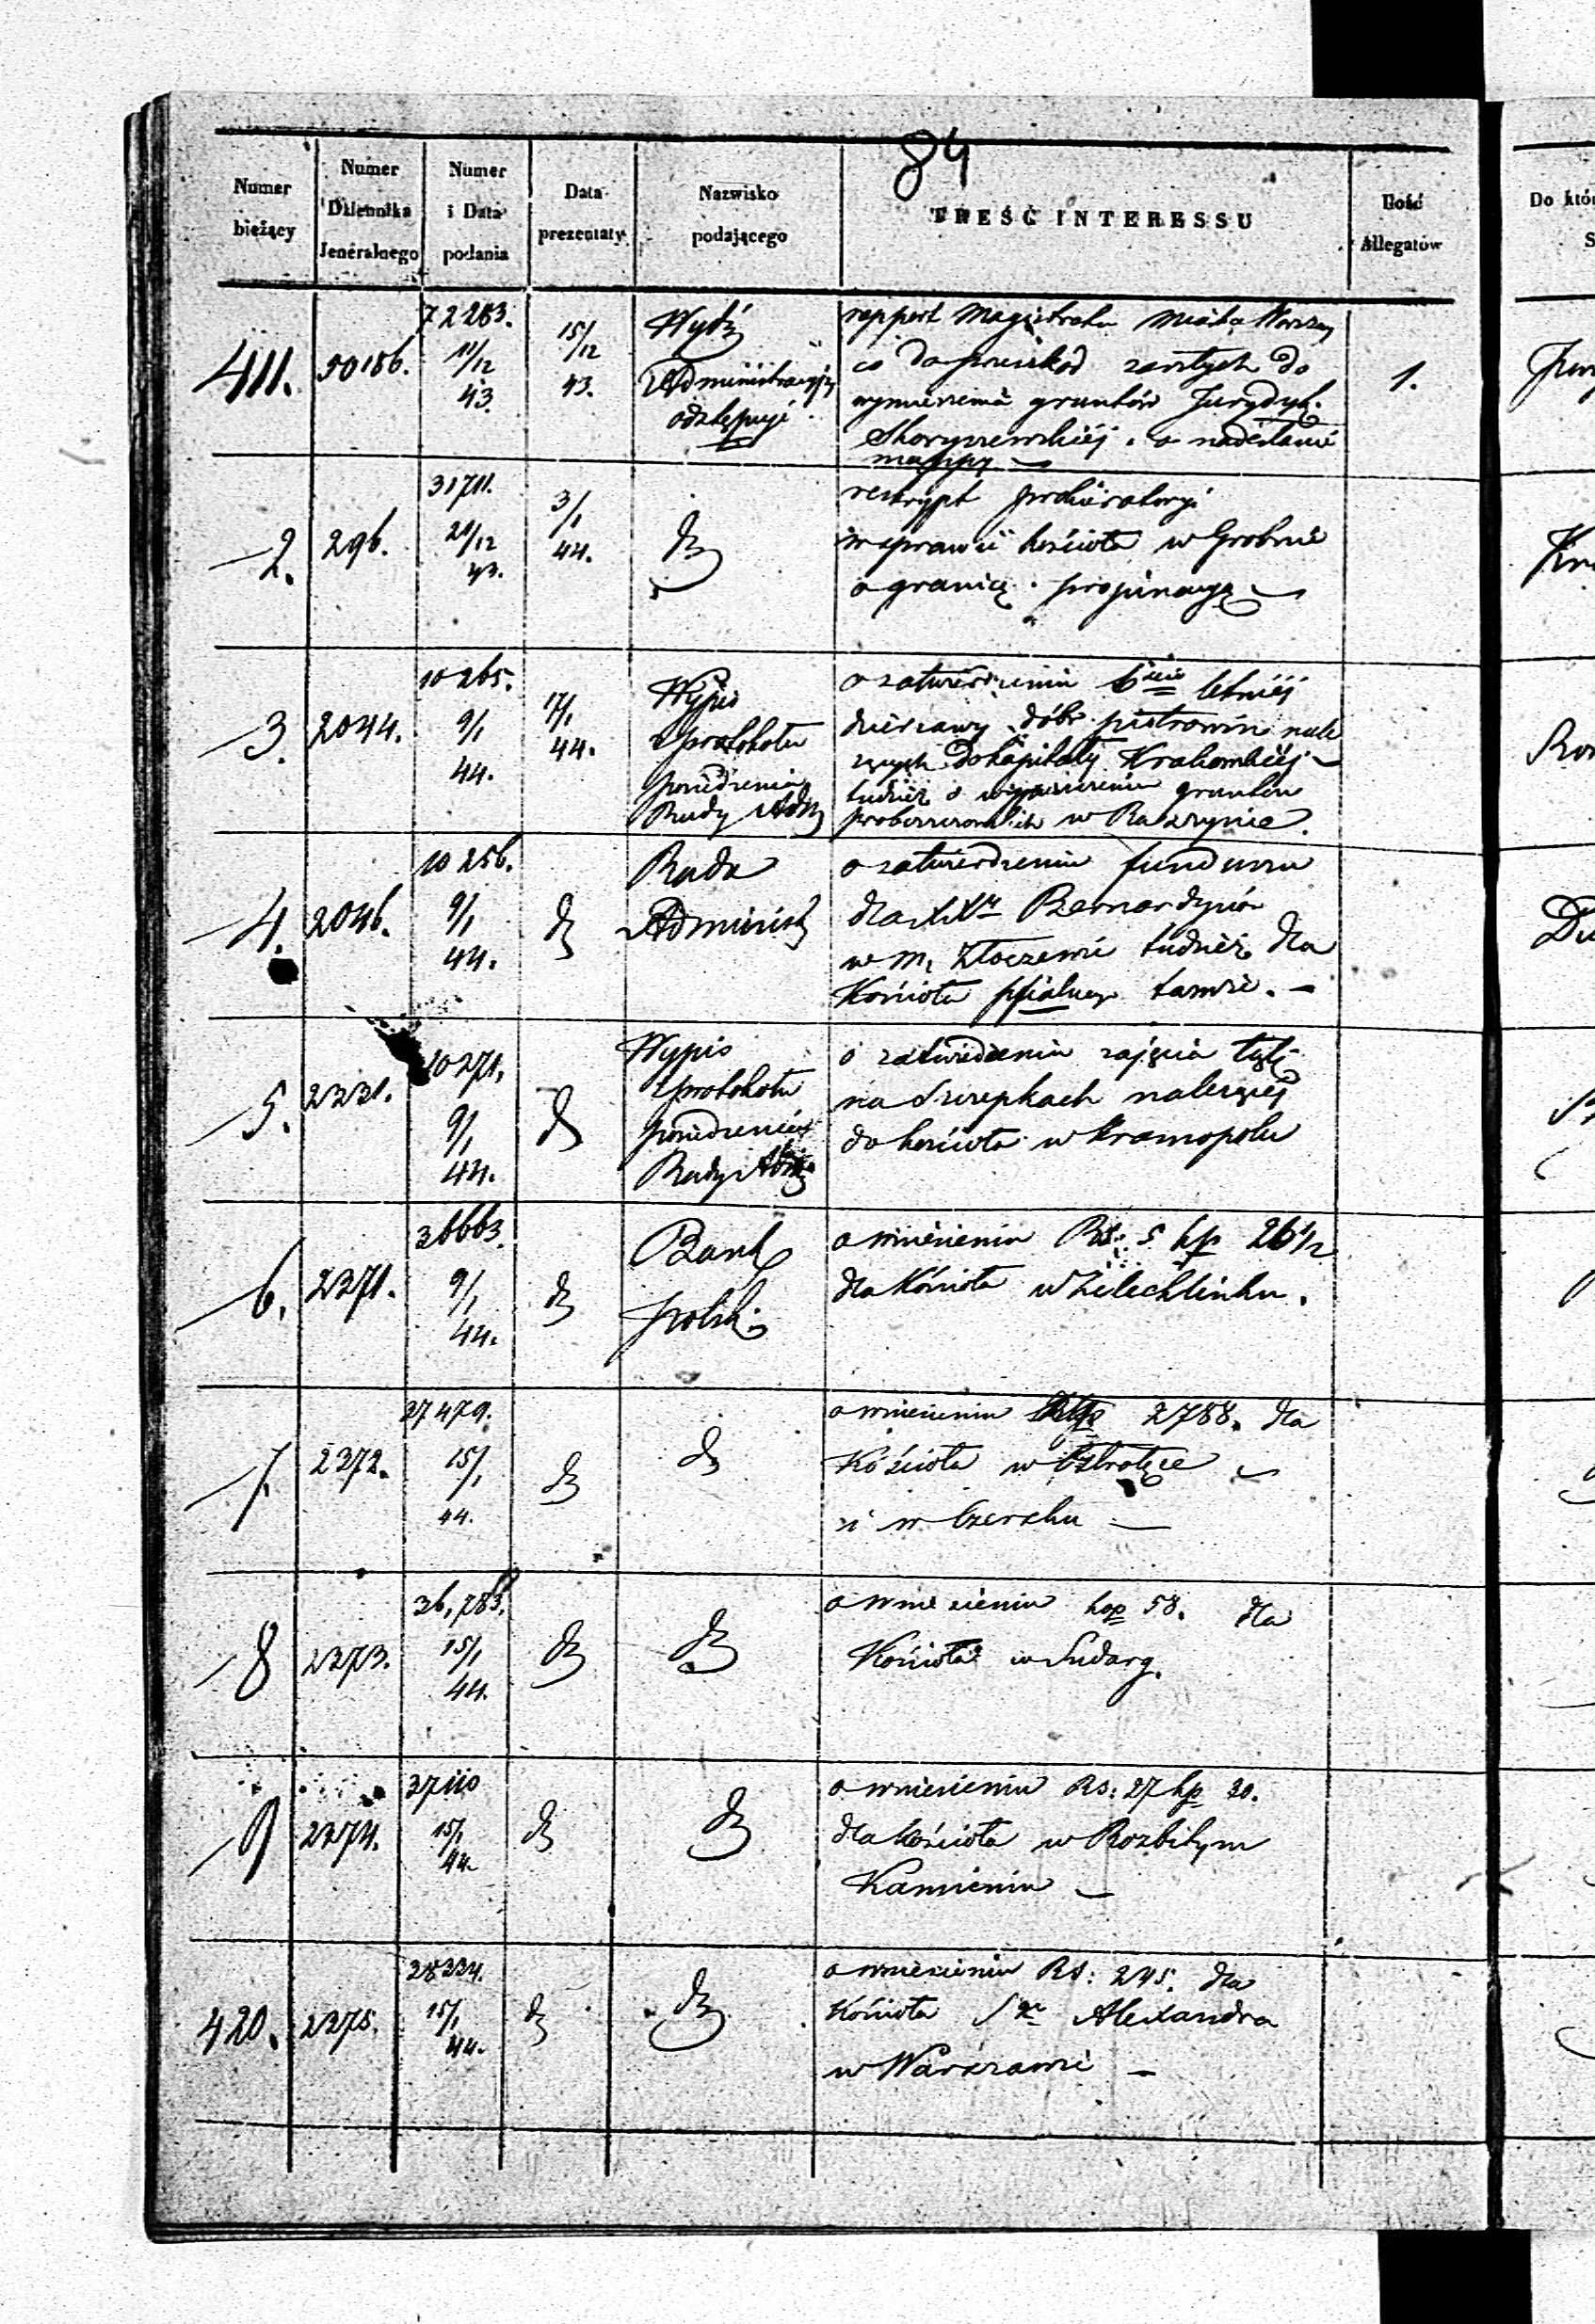 84
Numer bieżący
Numer Dziennika Jeneralnego
Numer i Data podania
Data prezentaty
Nazwisko podającego
TREŚĆ INTERESSU
Ilość Allegatów
Do któr
S
411.
50156.
72283.
11/12
43.
15/12
43.
Wydź
Administracyjny
odstępuje
rapport Magistratu Miasta Warszy
co do przeszkód zaszłych do
wymierzenia gruntów Jurydyk.
Skaryszewskiéj. o nadesłanie
mappy
1.
2.
296.
31711.
20/12
43.
3/1
44.
d
reskrypt prokuratoryi
w sprawie kościoła w Grobnie
o granicę. propinacyą
3.
2044.
10265.
9/1
44.
17/1
44.
Wypis
z protokołu
posiedzenia
Rady Adm
o zatwierdzeniu 6cio letniéj
dzierżawy dóbr piotrowin nale
żących do kapituły Krakowskiéj
tudzież o wypuszczeniu gruntów
proboszczowskich w Raszynie.
4.
2046.
10256.
9/1
44.
d
Rada
Administ
o zatwierdzeniu funduszu
dla XXy Bernardynów
w m. Złoczewie tudzież dla
Kościoła pfialnego tamże.
5.
2231.
10271.
9/1
44.
d
Wypis
z protokołu
posiedzenia
Rady Adm
o zatwierdzeniu zajęcia
na Szczepkach należącéj
do kościoła w Kramopolu
6.
2371.
36663.
9/1
44.
d
Bank
polski
o wniesieniu Rs: 5 kp 26 1/2
dla Kościoła w Żelechlinku.
7.
2372.
27479.
15/1
44.
d
d
o wniesieniu 2788. dla
Kościoła w Ostrołęce
i w Czersku
8
2373.
36,783.
15/1
44.
d
d
o wniesieniu kop 58. dla
Kościoła w Sudarg.
9
2374.
37110
15/1
44.
d
d
o wniesieniu Rs: 27 kp 30.
dla kościoła w Rozbitym
Kamieniu
420.
2375.
28334.
15/1
44.
d
d
o wniesieniu Rs: 245. dla
Kościoła Sgo Alexandra
w Warszawie